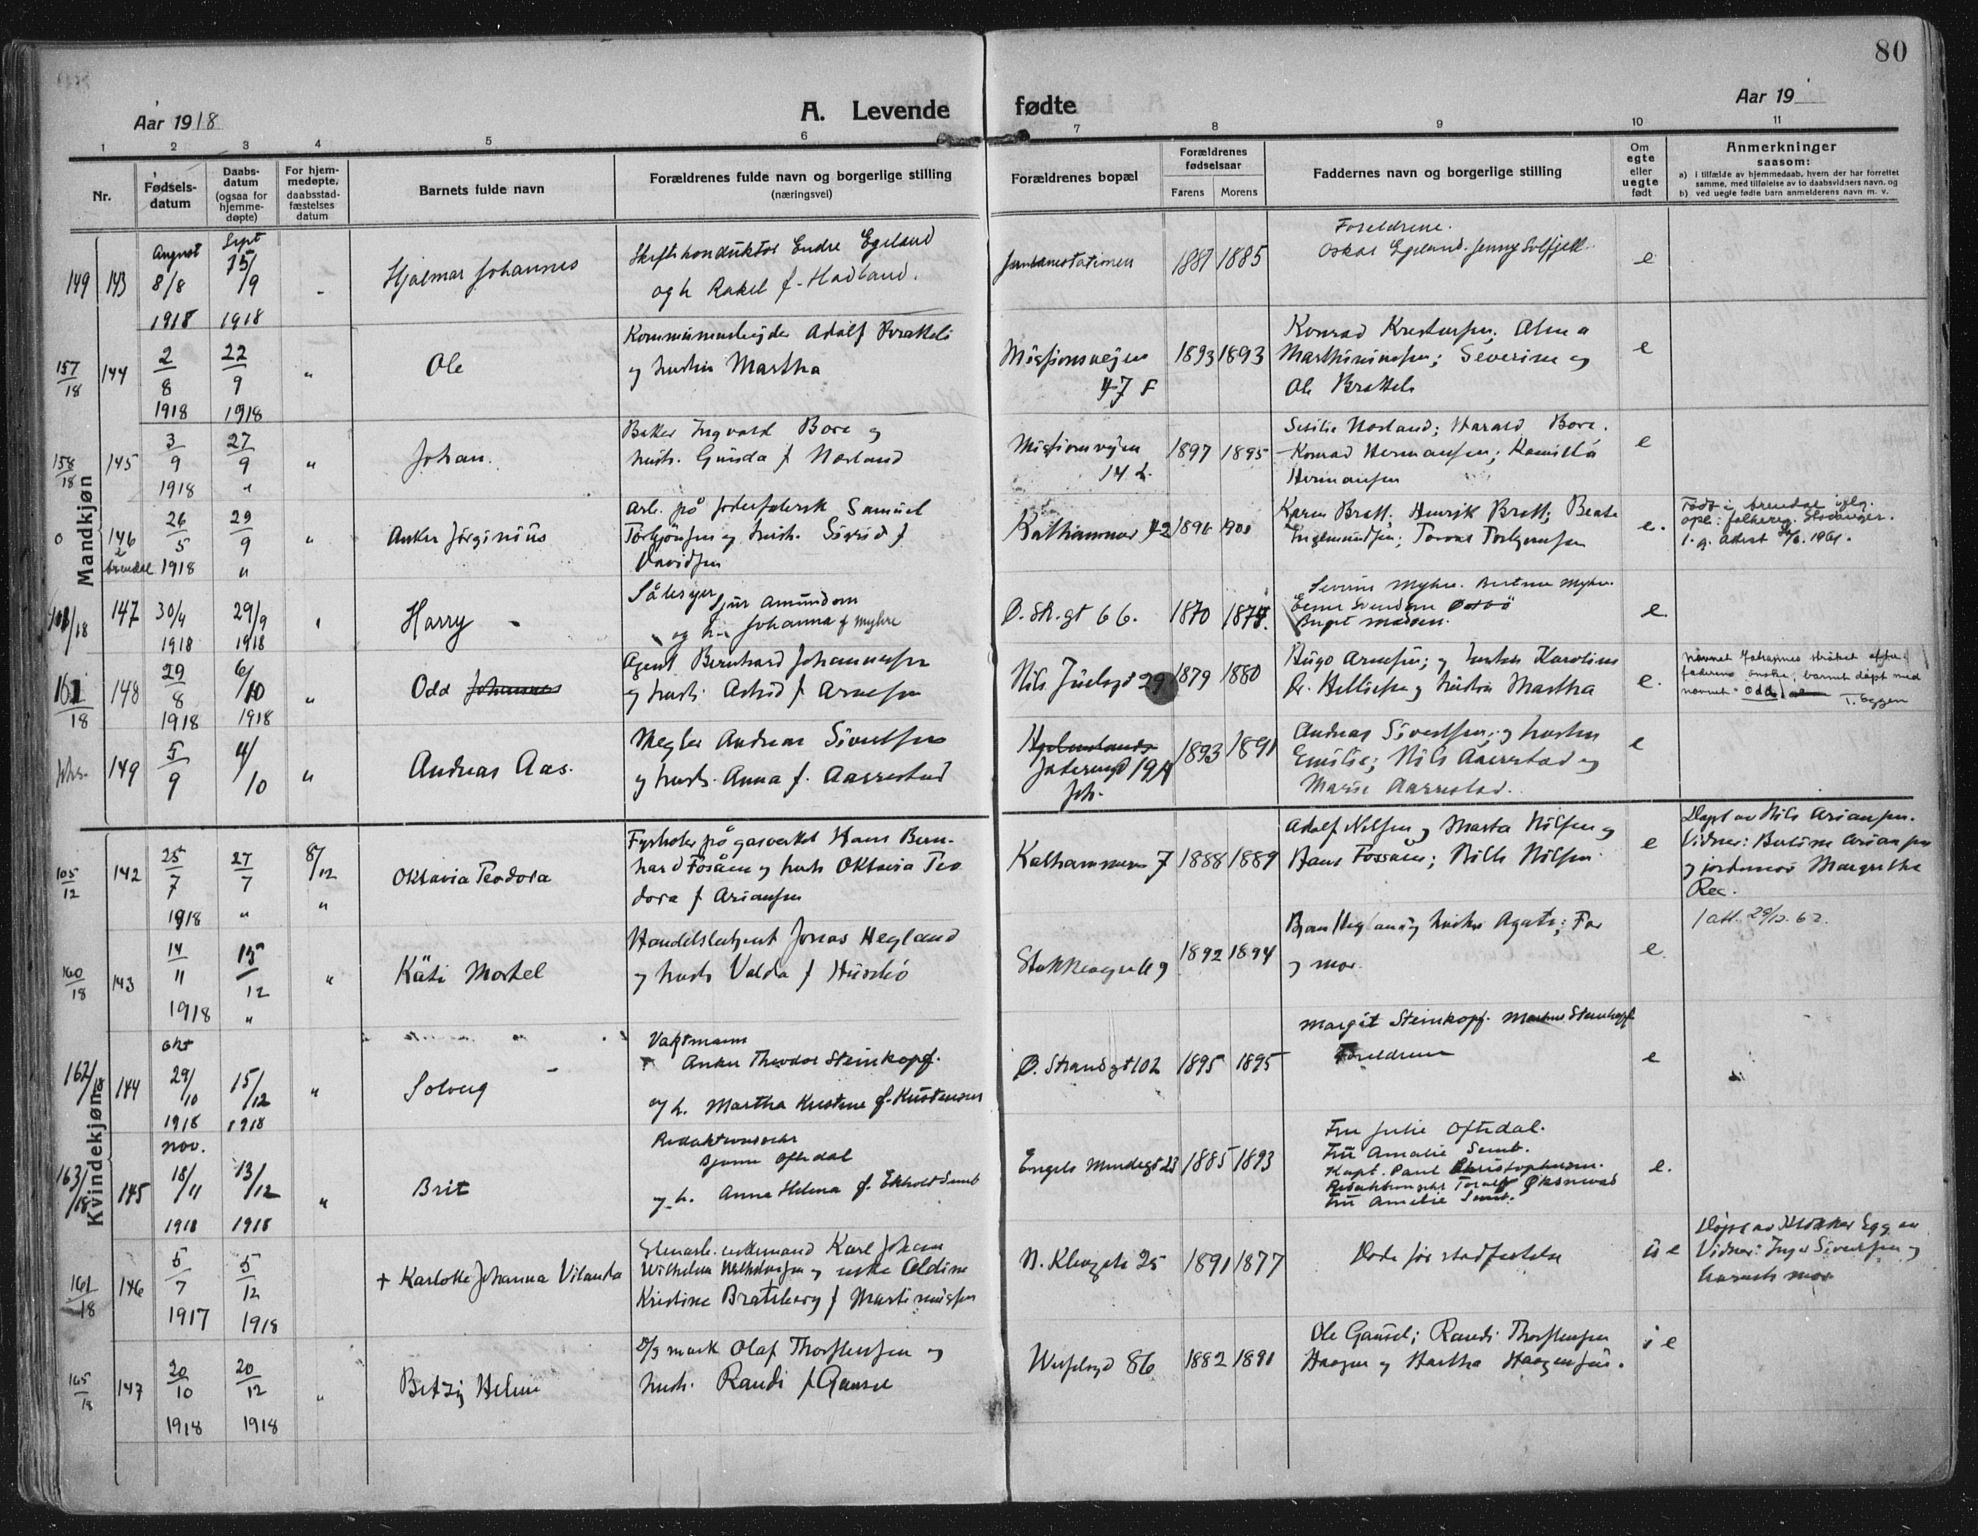 80
Aar 1918
A. Levende fødte
Aar 19
1 2 3 4 5 6 7 8 9 10 11
Nr.
Fødsels-
datum
Daabs-
datum
(ogsaa for
hjemme-
døpte)
For hjem-
medøpte,
daabsstad-
fæstelses
datum
Barnets fulde navn
Forældrenes fulde navn og borgerlige stilling
(næringsvei)
Forældrenes bopæl
Forældrenes
fødselsaar
Farens Morens
Faddernes navn og borgerlige stilling
Om
egte
eller
uegte
født
Anmerkninger
saasom:
a) i tilfælde av hjemmedaab, hvem der har forrettet
samme, med tilføielse av to daabsvidners navn, og
b) ved uegte fødte barn anmelderens navn m. v.
Mandkjøn
149 143 August 8/8 1918 Sept 15/9 1918
Hjalmar Johannes
Skiftekonduktør Endre Egeland
og h. Rakel f. Hadland.
Jernbanestationen 1887 1885
Foreldrene.
Oskar Egeland. Jenny Solfjell
e
157/18 144 2/8 1918 22/9 1918 "
Ole
Kommunearbeider Adolf Bratteli
og hustru Martha
Misjonsveien
47 F
1893 1893
Konrad Kristensen; Alma
Marthiniussen; Severine og
Ole Bratteli
e
158/18 145 3/9 1918 27/9 " "
Johan.
Baker Ingvald Bore og
hust. Gunda f. Nærland
Misjonsveien
14 L.
1897 1895
Sesilie Nærland; Harald Bore.
Konrad Hermansen; Kamilla
Hermansen
e
0 146 26/5 1918 29/9 " "
Anker Jørginius
Arb. på Samuel
Torbjørnsen og hust. Sigrid f.
Davidsen
Kalhammer 42 1896 1900
Karen Bratt; Henrik Bratt; Beate
Torbjørnsen
e.
Født i Arendal iflg.
opl. folkereg. Stavanger.
147 30/4 1918 29/9 1918
Harry
Sjur Amundsen
og h. Johanna f. Myhre
Ø. Str.gt 66. 1870 1875.
Severine Myhre. Bertine Myhre.
Madsen.
e.
161/18 148 29/8 1918 6/10 1918 "
Odd Johannes
Agent Bernhard Johannessen
og hust. Astrid f. Arnesen
Nils Juelsgd 29 1879 1880
Hugo Arnesen; og hustru Karoline
Dr. Helliesen og hustru Martha
e.
Navnet Johannes strøket efter
faderens ønske, barnet døpt med
navnet Odd
T. Eggen
Joh. 149 5/9 4/10 "
Andreas Aas.
Megler Andreas Sivertsen
og hust. Anna f. Aarrestad
Jæderengt 19A
Joh.
1893 1891
Andreas Sivertsen; og hustru
Emilie; Nils Aarrestad og
Marie Aarrestad.
e
Kvindekjøn
105/12 142 25/7 1918 27/7 " 8/12 "
Oktavia Teodora
Fyrbøter på gasverket Hans Bern-
hard Fosåen og hust Oktavia Teo
dora f. Ariansen
Kalhammeren 7 1888 1889
Adolf Nilsen og Marta Nilsen og
Hans Fossåen; Nils Nilsen.
e
Døpt av Nils Ariansen.
Vidner: Bertine Ariansen
og jordemor Margrethe
Ree.
1 att. 29/12. 62.
160/18 143 14/11 1918 15/12 " "
Käti Mortel
Handelsbetjent Jonas Hegland
og hust. Valda f. Husebø
Stokkavgaten 9 1892 1894
Bjarne Hegland og hustru Agate; Far
og mor.
e.
162/18 144 okt 29/10 1918 15/12 1918 "
Solveig
Vaktmann
Anker Theodor Steinkopf.
og h. Martha Kristine f. Kristensen
Ø. Strandgt 102 1895 1895
Margit Steinkopf. Martine Steinkopf
Foreldrene
e
163/18 145 nov. 18/11 1918 13/12 1918 "
Brit
Redaktionssekr
Bjarne Oftedal
og h. Anna Helena f. Ekholdt Semb
Engels mindegt 23 1885 1893
Fru Julie Oftedal.
Fru Amalie Semb.
Kapt. Paul Christophersen.
Redaktionssekr Toralf Øksnevad
Fru Amalie Semb.
e.
161/18 146 5/7 1917 5/12 1918
+ Karlotte Johanna Vilanda
Karl Johan
Wilhelm og enke Oldine
Kristine Bratsberg f Martiniussen
N. Klevgate 25 1891 1877
Døde før stadfestelse
u e
Døpt av Klokker Eggen
Vidner: Inger Sivertsen og
barnets mor
165/18 147 20/10 1918 20/12 1918 "
Betzy Helene
Olaf Thorstensen og
hust. Randi f Gausel
86 1882 1891
Ole Gausel; Randi Thorstensen
Haagen og Martha Haagensen.
i e